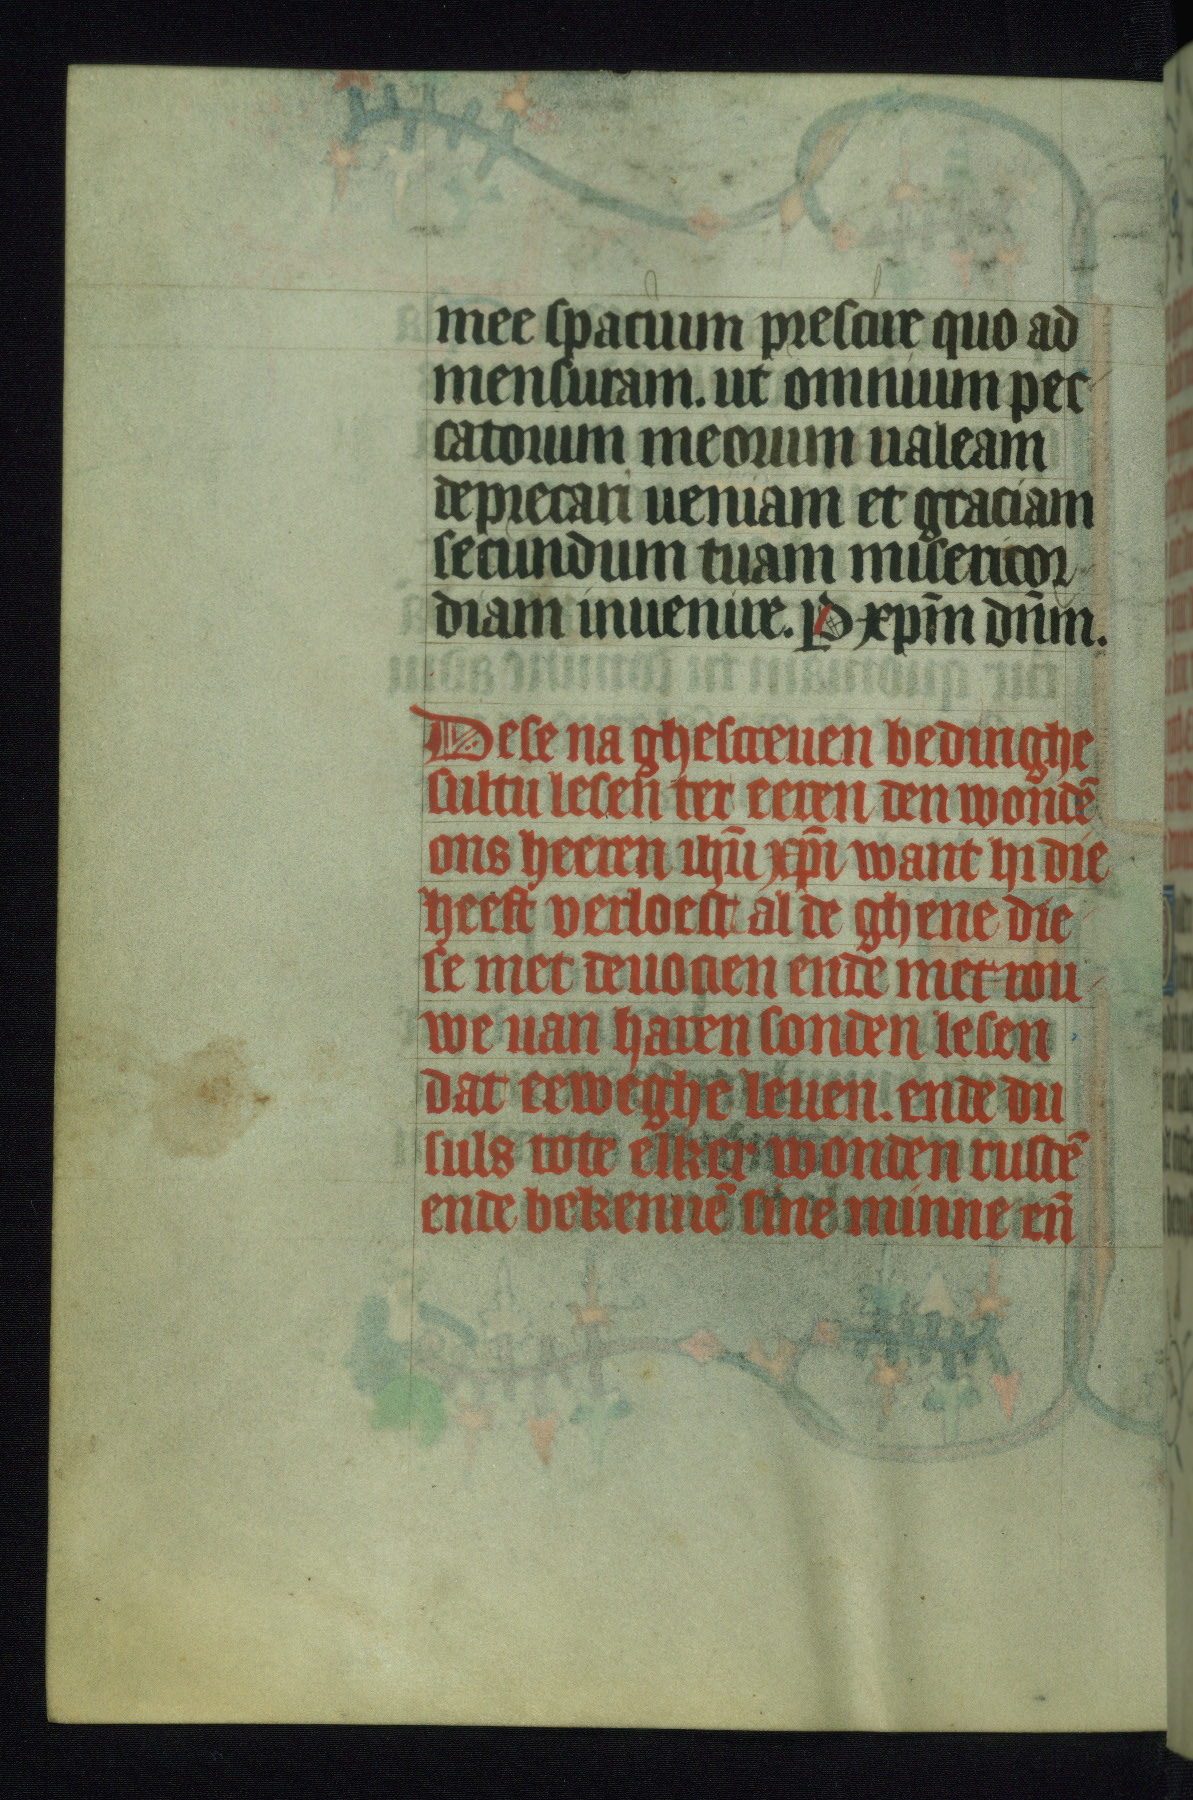 mee spacium prescire quo ad
mensuram. ut omnium pec
catorum meorum ualeam
deprecari ueniam et graciam
secundum tuam misericor
diam inuenire. P xp̄m dn̄m.
Dese na ghescreuen bedinghe
sultu lesen ter eeren den wondē
ons heeren ihū xp̄i want hi die
heeft verloest al de ghene die
se met deuocien ende met rou
we uan haren sonden lesen
dat eeweghe leuen. ende du
suls tote elker wonden rustē
ende bekennē sine minne en̄